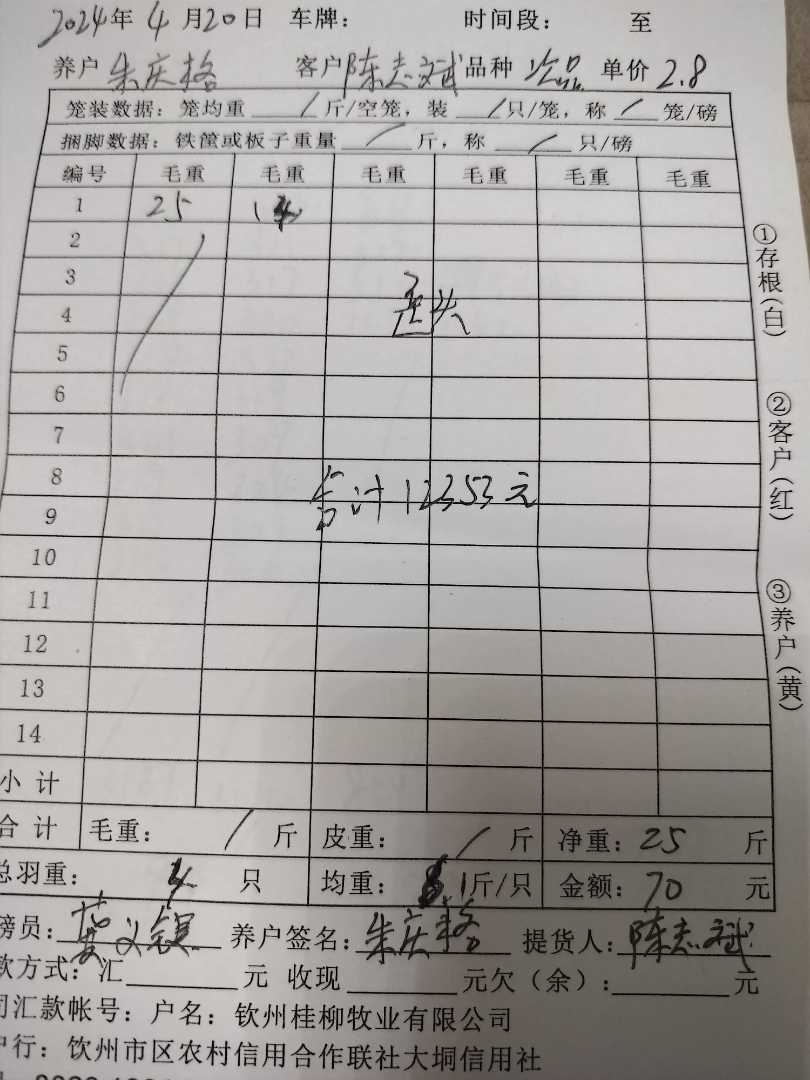 2024年 4月20日 车牌: 时间段: 至
养户 朱庆格 客户 陈志斌 品种 次品 单价 2.8
笼装数据: 笼均重 / 斤/空笼, 装 / 只/笼, 称 / 笼/磅
捆脚数据: 铁筐或板子重量 / 斤, 称 / 只/磅
编号 毛重 毛重 毛重 毛重 毛重 毛重
1 25
2
3
4
5
6
7
8
合计12353元
9
10
11
12
13
14
小计
合计 毛重: / 斤 皮重: / 斤 净重: 25 斤
总羽重: 4 只 均重: 斤/只 金额: 70 元
磅员: 养户签名: 朱庆格 提货人: 陈志斌
款方式: 汇 元 收现 元欠(余): 元
司汇款帐号: 户名: 钦州桂柳牧业有限公司
户行: 钦州市区农村信用合作联社大垌信用社
①存根(白)
②客户(红)
③养户(黄)